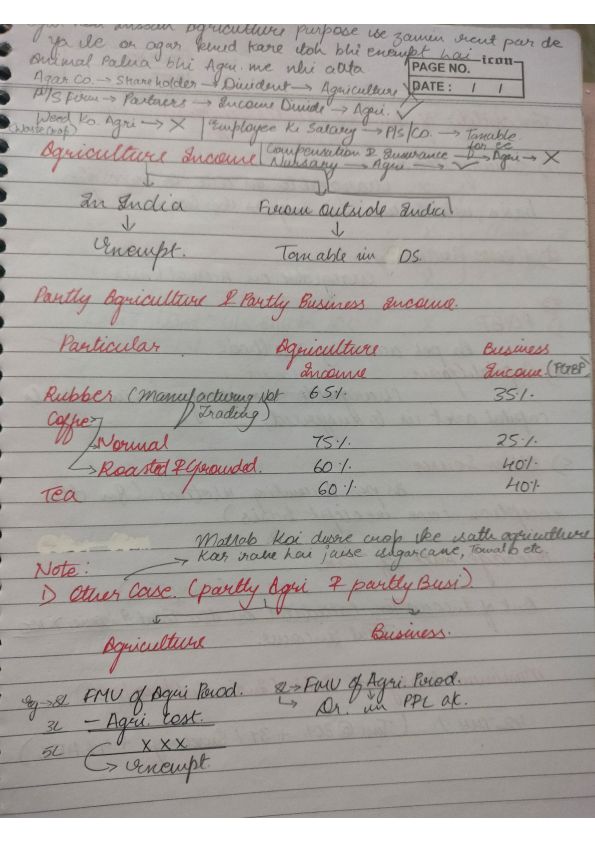 Agriculture purpose ke zameen rent par de
ya le or agar khud kare woh bhi exempt hai
Animal Palna bhi Agri. me nhi aata
icon
PAGE NO.
DATE: / /
Agar Co. → Shareholder → Divident → Agriculture
P/S firm → Partners → Income Divide → Agri. ✓
Weed Ko Agri → X
(Waste crop)
Employee Ki Salary → P/S/Co. → Taxable for ee
Compensation & Insurance → Agri → X
Nursary → Agri → ✓
Agriculture Income
In India From outside India
↓ ↓
Exempt. Taxable in OS.
Partly Agriculture & Partly Business Income.
Particular Agriculture Income Business Income (PGBP)
Rubber (Manufacturing Not Trading) 65% 35%
Coffee
→ Normal 75% 25%
→ Roasted & Grounded. 60% 40%
Tea 60% 40%
Matlab Koi dusre crop ke sath agriculture
kar rahe hai jaise sugarcane, Tomato etc.
Note:
1) Other Case. (partly Agri & partly Busi).
Agriculture Business.
Eg → 8L FMV of Agri Prod. 8L → FMV of Agri Prod.
3L - Agri. cost. ↳ Dr. in P&L a/c.
5L X X X
→ Exempt